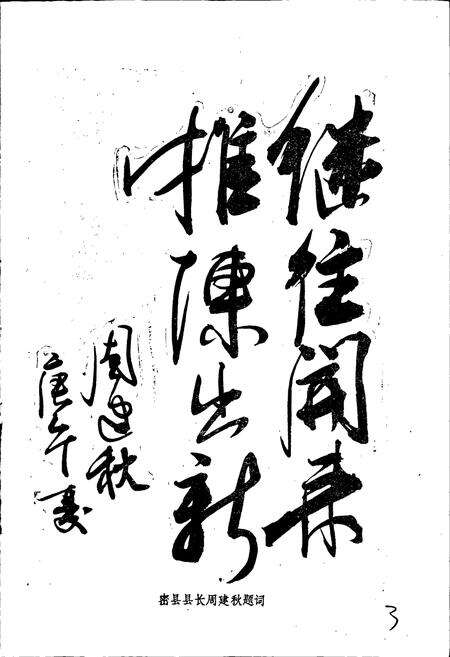 继往开来
推陈出新
周建秋
庚午夏
密县县长周建秋题词
3